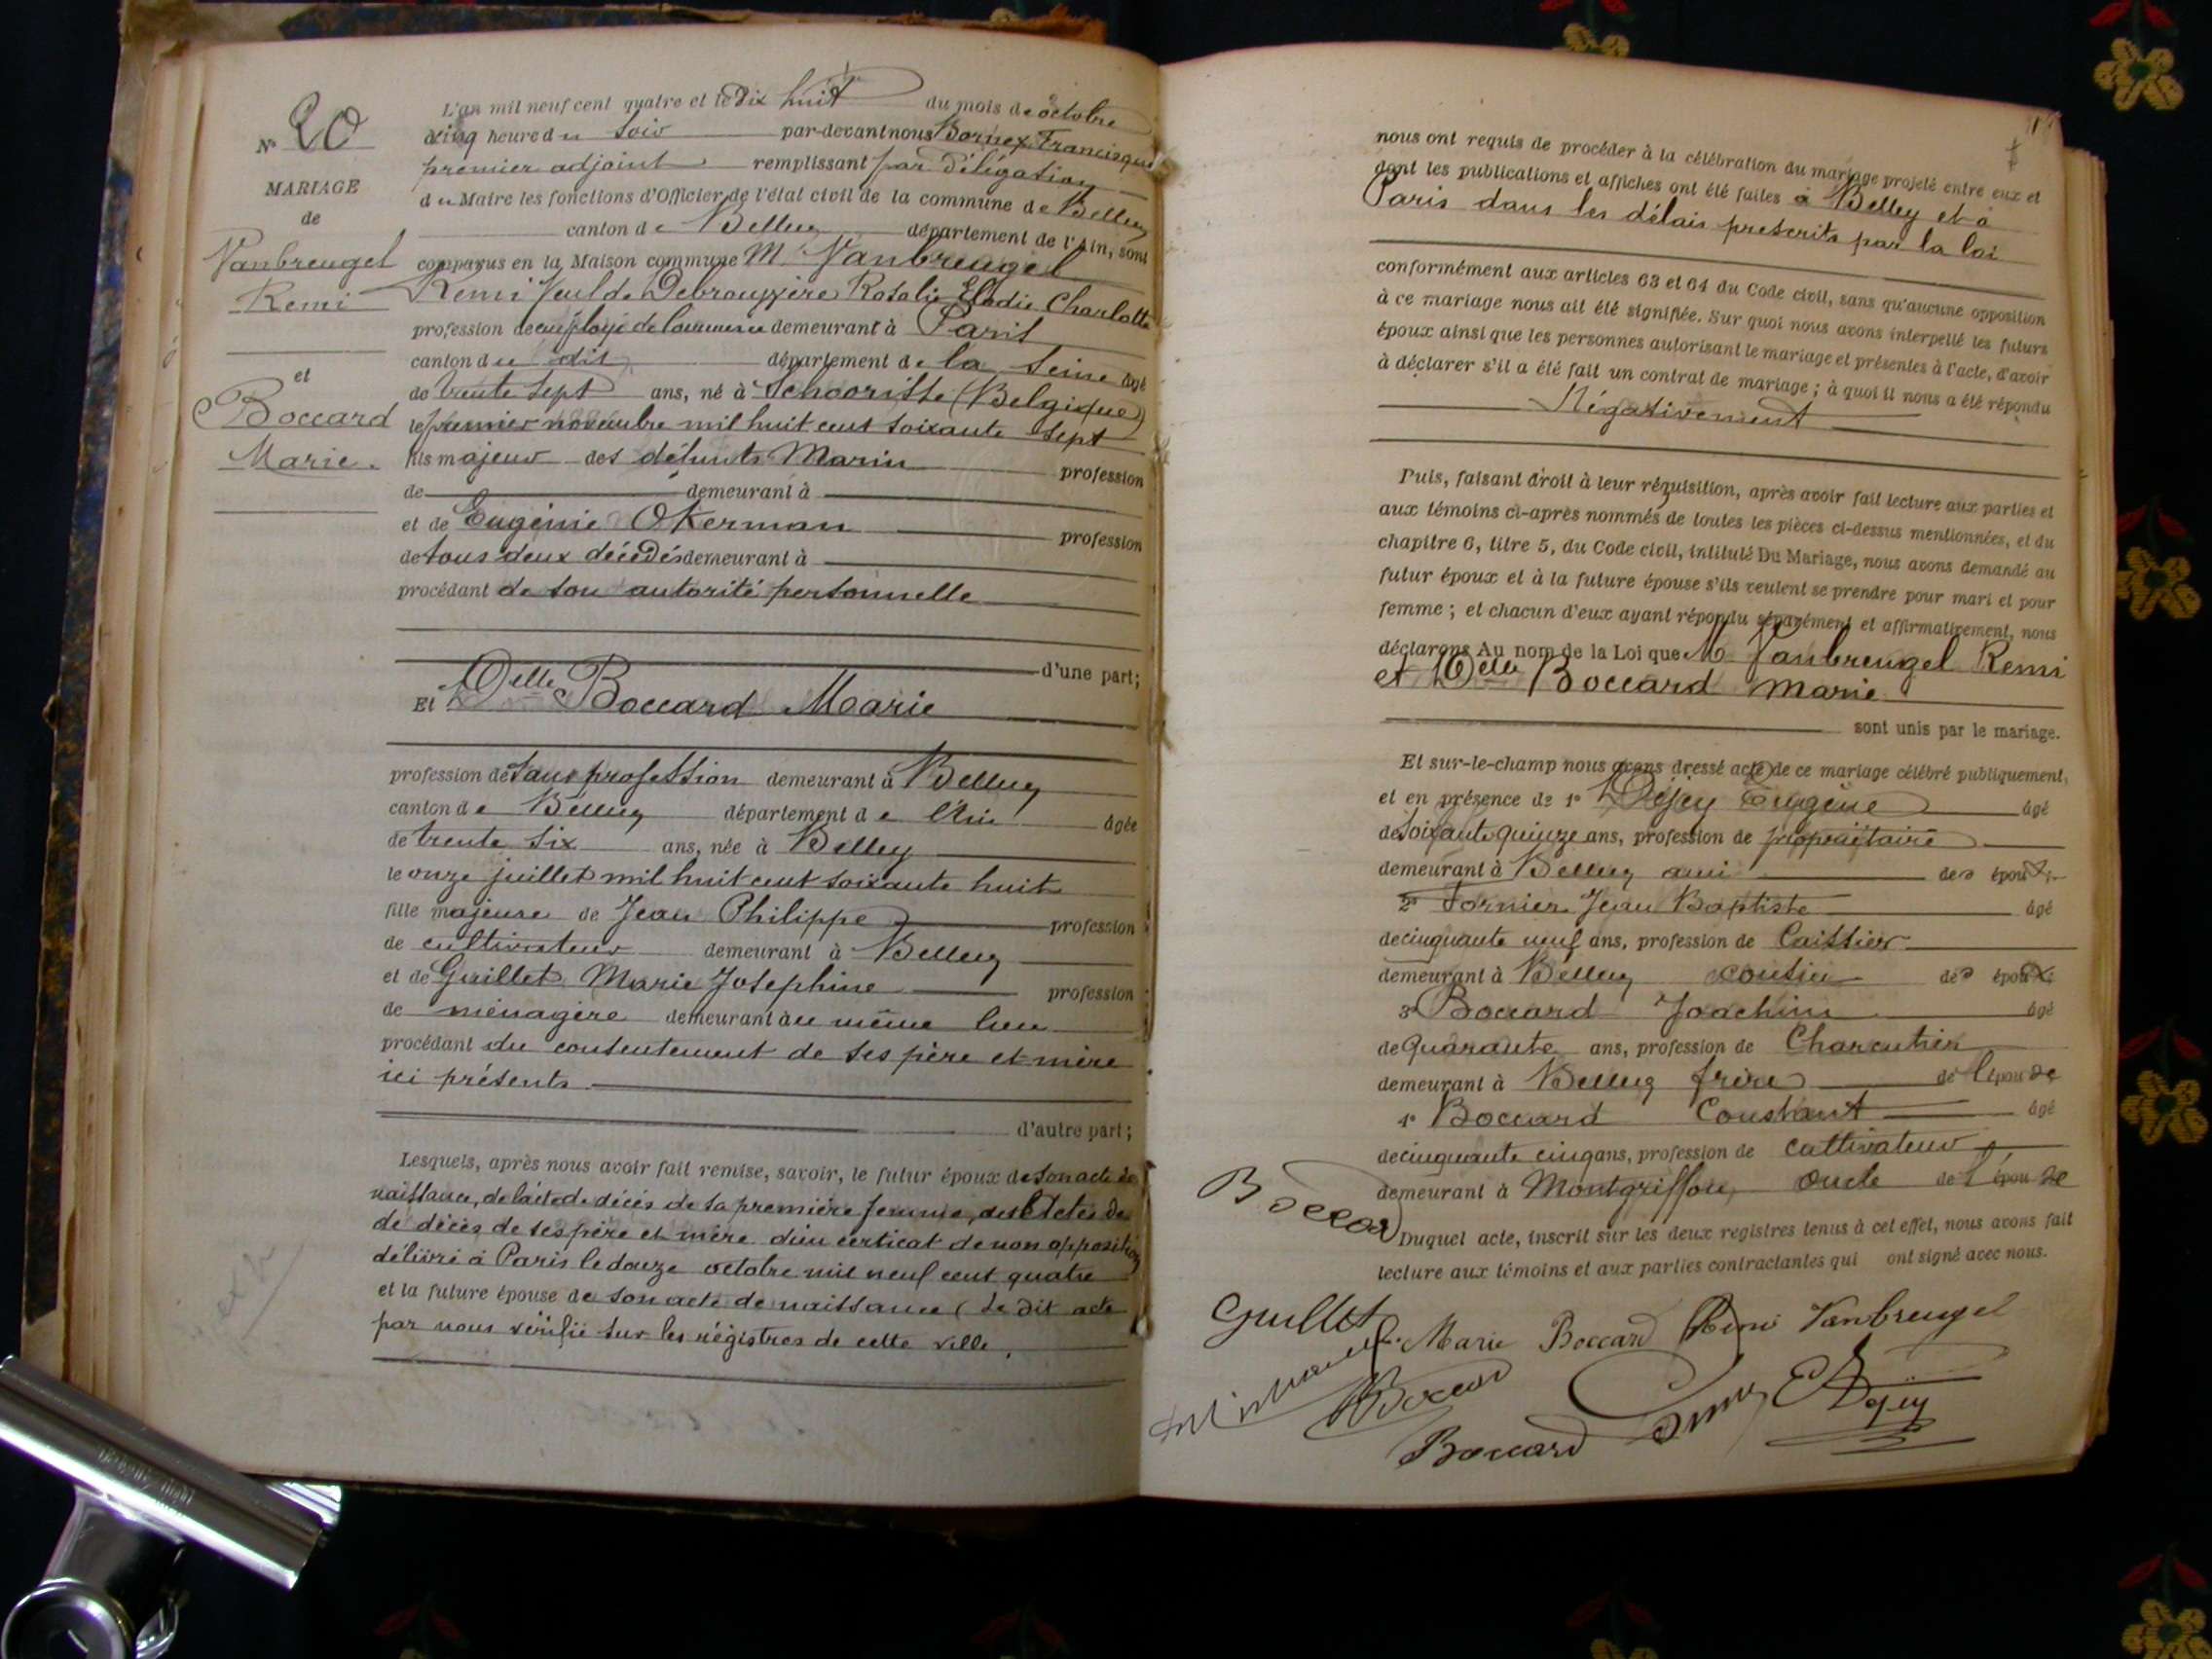 N° 20
MARIAGE
de
Vanbreugel
Remi
et
Boccard
Marie.
L'an mil neuf cent quatre et le Dix huit du mois de octobre
cinq heure du soir par-devant nous Bornex Francisque
premier adjoint remplissant par délégation
du Maire les fonctions d'Officier de l'état civil de la commune de Belley
canton de Belley département de l'Ain, sont
comparus en la Maison commune M. Vanbreugel
Remi Veuf de Debrouyère Rosalie Elodie Charlotte
profession de employé de commerce demeurant à Paris
canton du dit département de la Seine âgé
de trente sept ans, né à Schoorisse (Belgique)
le premier novembre mil huit cent soixante sept
fils majeur des défunts Marin profession
de demeurant à
et de Eugénie Okerman profession
de tous deux décédés demeurant à
procédant de son autorité personnelle
d'une part;
Et Delle Boccard Marie
profession de sans profession demeurant à Belley
canton de Belley département de l'Ain âgée
de trente six ans, née à Belley
le onze juillet mil huit cent soixante huit
fille majeure de Jean Philippe profession
de cultivateur demeurant à Belley
et de Guillet Marie Josephine profession
de ménagère demeurant au même lieu
procédant du consentement de ses père et mère
ici présents
d'autre part;
Lesquels, après nous avoir fait remise, savoir, le futur époux de son acte de
naissance, de l'acte de décès de sa première femme, des actes de
de décès de ses père et mère d'un certicat de non opposition
délivré à Paris le douze octobre mil neuf cent quatre
et la future épouse de son acte de naissance (Le dit acte
par nous vérifié sur les régistres de cette ville.
nous ont requis de procéder à la célébration du mariage projeté entre eux et
dont les publications et affiches ont été faites à Belley et à
Paris dans les délais prescrits par la loi
conformément aux articles 63 et 64 du Code civil, sans qu'aucune opposition
à ce mariage nous ait été signifiée. Sur quoi nous avons interpellé les futurs
époux ainsi que les personnes autorisant le mariage et présentes à l'acte, d'avoir
à déclarer s'il a été fait un contrat de mariage; à quoi il nous a été répondu
Négativement
Puis, faisant droit à leur réquisition, après avoir fait lecture aux parties et
aux témoins ci-après nommés de toutes les pièces ci-dessus mentionnées, et du
chapitre 6, titre 5, du Code civil, intitulé Du Mariage, nous avons demandé au
futur époux et à la future épouse s'ils veulent se prendre pour mari et pour
femme; et chacun d'eux ayant répondu séparément et affirmativement, nous
déclarons Au nom de la Loi que M. Vanbreugel Remi
et Delle Boccard Marie
sont unis par le mariage.
Et sur-le-champ nous avons dressé acte de ce mariage célébré publiquement,
et en présence de 1° Dejey Eugène âgé
de Soixante quinze ans, profession de propriétaire
demeurant à Belley ami des époux
2° Fornier Jean Baptiste âgé
de cinquante neuf ans, profession de Caissier
demeurant à Belley cousin des époux
3° Boccard Joachim âgé
de quarante ans, profession de Charcutier
demeurant à Belley frère de l'épouse
4° Boccard Constant âgé
de cinquante cinq ans, profession de cultivateur
demeurant à Montgriffon, oncle de l'épouse
Duquel acte, inscrit sur les deux registres tenus à cet effet, nous avons fait
lecture aux témoins et aux parties contractantes qui ont signé avec nous.
Boccard
Guillet
Marie Boccard Remi Vanbreugel
Boccard
Dejey
Boccard